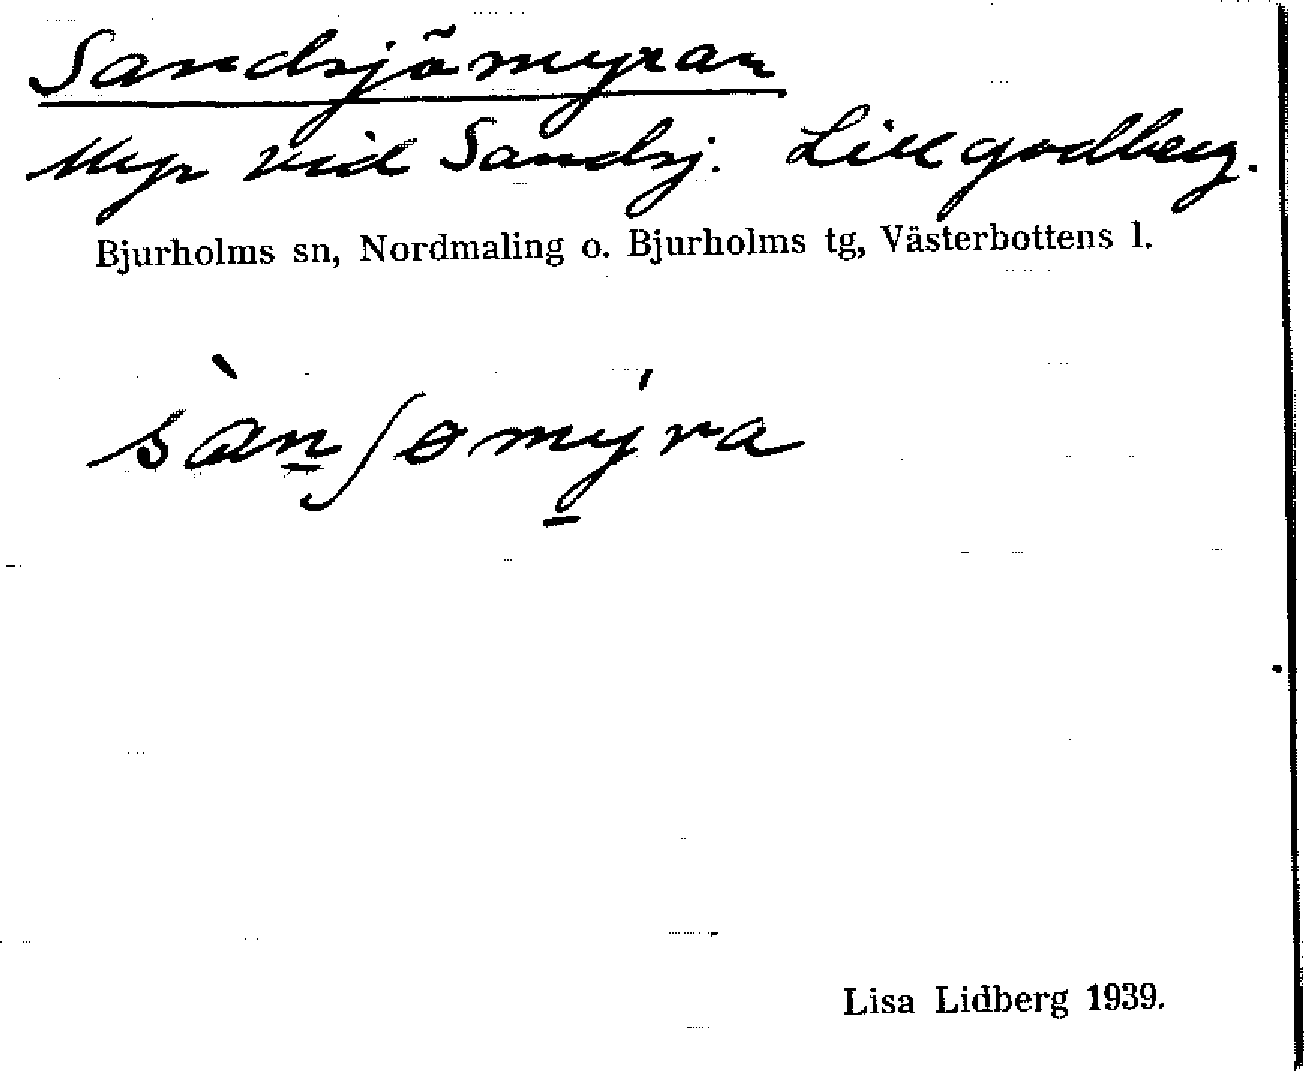 Sandsjömyran
Myr vid Sandsj. Lillgodberg.
Bjurholms sn, Nordmaling o. Bjurholms tg, Västerbottens l.
sàn̲ʃomý̲ra
Lisa Lidberg 1939.